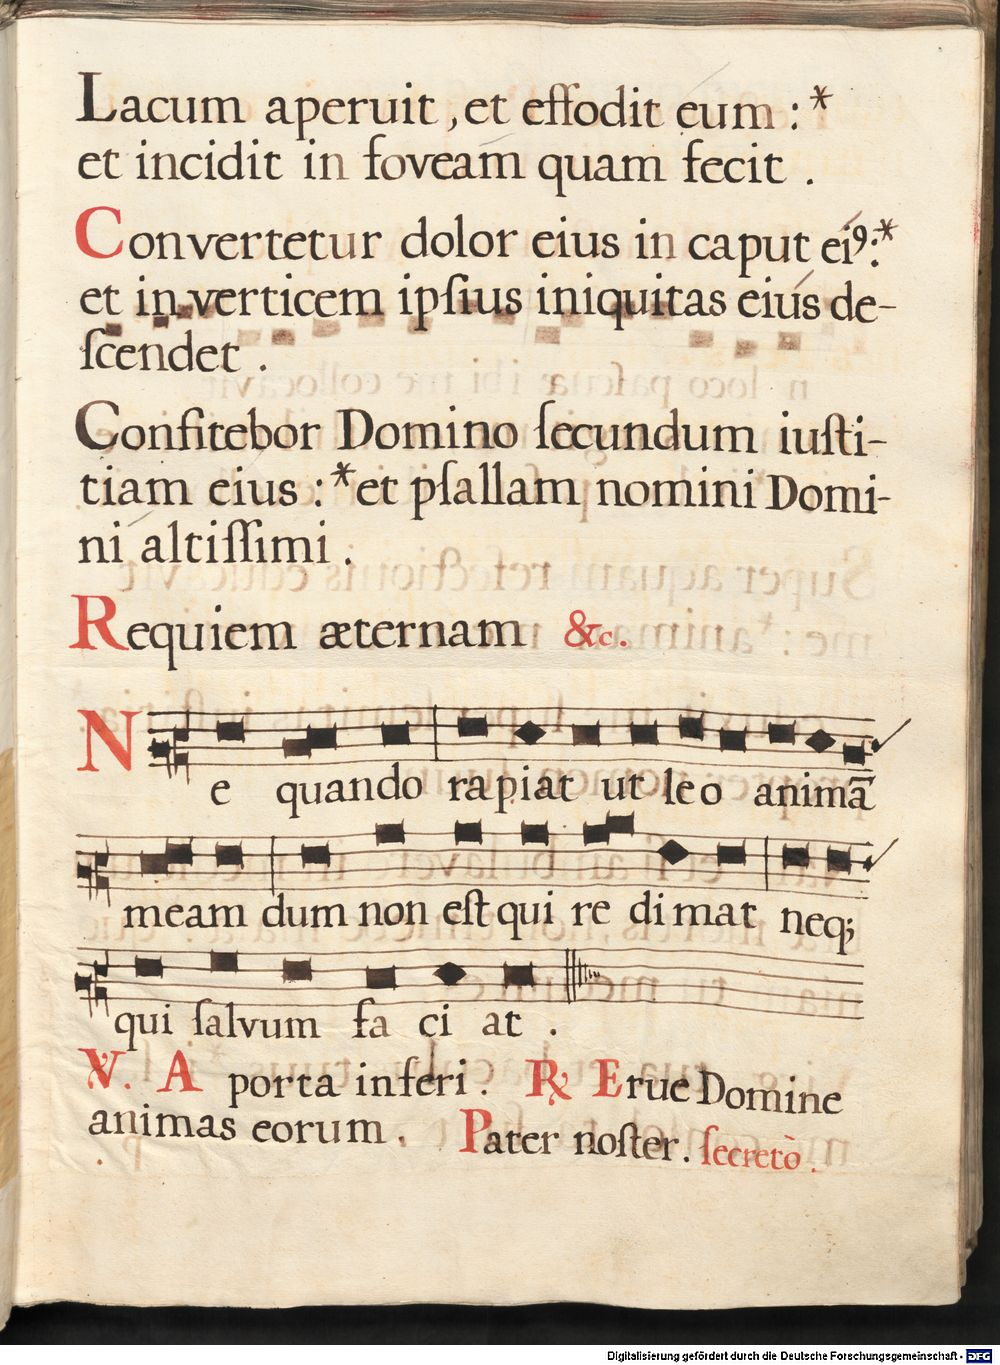 Lacum aperuit, et effodit eum : *
et incidit in foveam quam fecit .
Convertetur dolor eius in caput eiꝰ: *
et in verticem ipſius iniquitas eiús de-
ſcendet .
Confitebor Domino ſecundum iuſti-
tiam eius : * et pſallam nomini Domi-
ni altiſſimi .
Requiem æternam &c.
Ne quando rapiat ut leo animā
meam dum non eſt qui re dimat neq;
qui ſalvum fa ci at .
℣. A porta inferi . ℟ Erue Domine
animas eorum . Pater noſter. ſecretò .
Digitalisierung gefördert durch die Deutsche Forschungsgemeinschaft - DFG